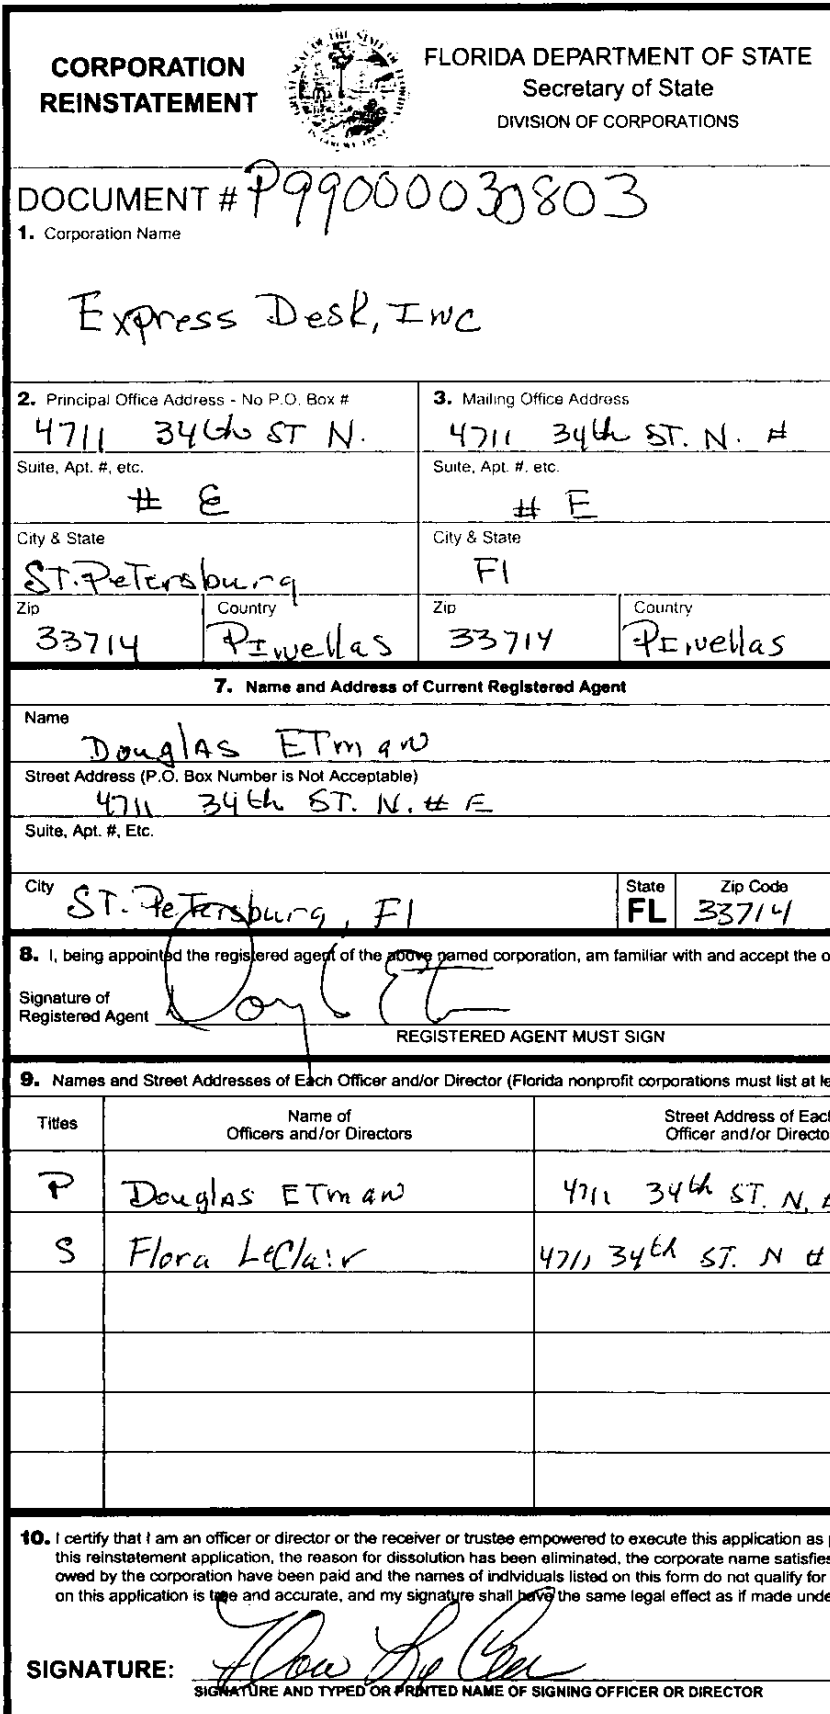 CORPORATION
REINSTATEMENT
FLORIDA DEPARTMENT OF STATE
Secretary of State
DIVISION OF CORPORATIONS
DOCUMENT # P99000030803
1. Corporation Name
Express Desk, Inc
2. Principal Office Address - No P.O. Box #
3. Mailing Office Address
4711 34th ST N.
4711 34th ST. N. #
Suite, Apt. #, etc.
Suite, Apt. #, etc.
# E
# E
City & State
City & State
ST. PeTersburg
Fl
Zip
Country
Zip
Country
33714
PINellas
33714
PINellas
7. Name and Address of Current Registered Agent
Name
Douglas ETman
Street Address (P.O. Box Number is Not Acceptable)
4711 34th ST. N. # E
Suite, Apt. #, Etc.
City
ST. PeTersburg, Fl
State
FL
Zip Code
33714
8. I, being appointed the registered agent of the above named corporation, am familiar with and accept the o
Signature of
Registered Agent
REGISTERED AGENT MUST SIGN
9. Names and Street Addresses of Each Officer and/or Director (Florida nonprofit corporations must list at le
Titles
Name of
Officers and/or Directors
Street Address of Eac
Officer and/or Directo
P Douglas ETman 4711 34th ST. N. #
S Flora LeClair 4711 34th ST. N #
10. I certify that I am an officer or director or the receiver or trustee empowered to execute this application as p
this reinstatement application, the reason for dissolution has been eliminated, the corporate name satisfies
owed by the corporation have been paid and the names of individuals listed on this form do not qualify for
on this application is true and accurate, and my signature shall have the same legal effect as if made unde
SIGNATURE:
SIGNATURE AND TYPED OR PRINTED NAME OF SIGNING OFFICER OR DIRECTOR